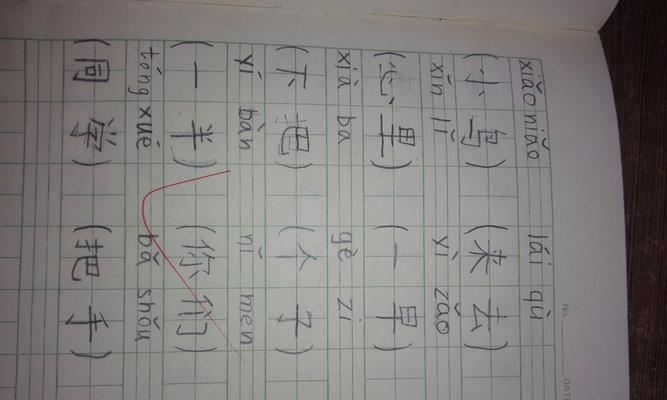 No. DATE
xiǎo niǎo lái qù
(小鸟) (来去)
xīn lǐ yì zǎo
(心里) (一早)
xià ba gè zi
(下把) (个子)
yí bàn nǐ men
(一半) (你们)
tóng xué bǎ shǒu
(同学) (把手)